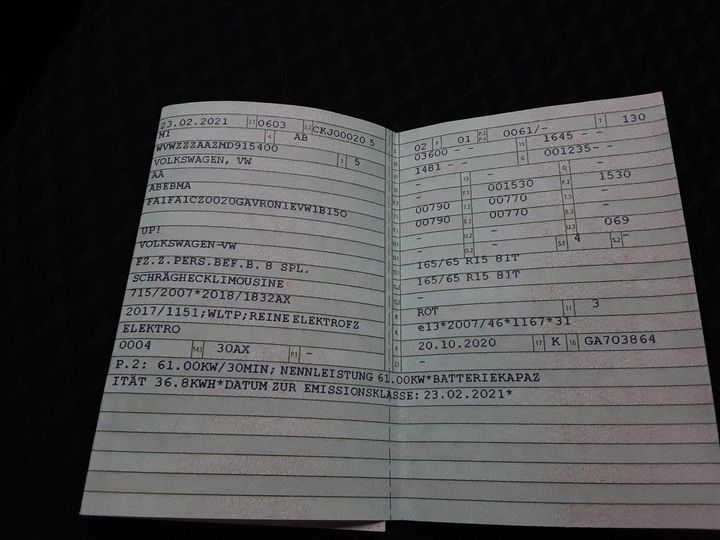 23.02.2021 2.1 0603 2.2 CKJ00020 5
M1 4 AB
WVWZZZAAZMD915400
VOLKSWAGEN, VW 3 5
AA
ABEBMA
FA1FA1CZ0020GAVR0N1EVW1BI5O
UP!
VOLKSWAGEN-VW
FZ.Z.PERS.BEF.B. 8 SPL.
SCHRÄGHECKLIMOUSINE
715/2007*2018/1832AX
2017/1151;WLTP;REINE ELEKTROFZ
ELEKTRO
0004 14.1 30AX P.3 -
02 9 01 P.2 P.4 0061/- T 130
03600 - - 19 1645 - -
1481 - - G 001235- -
- 13 - Q -
- F.1 001530 F.2 1530
00790 7.2 00770 7.3 -
00790 8.2 00770 8.3 -
- U.2 - U.3 069
- O.2 - S.1 4 S.2 -
165/65 R15 81T
165/65 R15 81T
-
ROT 11 3
e13*2007/46*1167*31
20.10.2020 17 K 16 GA703864
-
P.2: 61.00KW/30MIN; NENNLEISTUNG 61.00KW*BATTERIEKAPAZ
ITÄT 36.8KWH*DATUM ZUR EMISSIONSKLASSE: 23.02.2021*